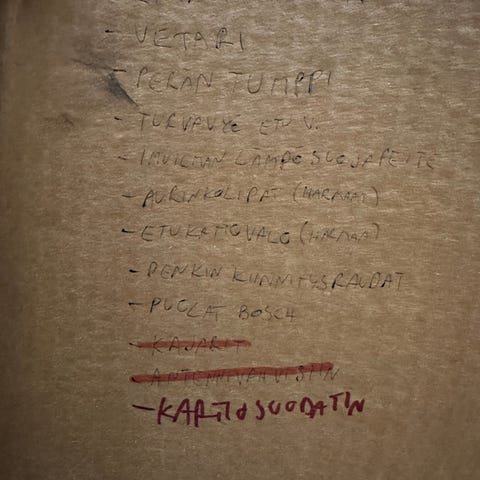 - VETARI
- PERÄN TUMPPI
- TURVAVYÖ ETU V.
- IMUILMAN LÄMPÖSUOJAPEITE
- AURINKOLIPAT (HARMAAT)
- ETUKATTOVALO (HARMAA)
- PENKIN KIINNITYSRAUDAT
- PUOLAT BOSCH
- KAJARIT
- ANTENNIVAHVISTIN